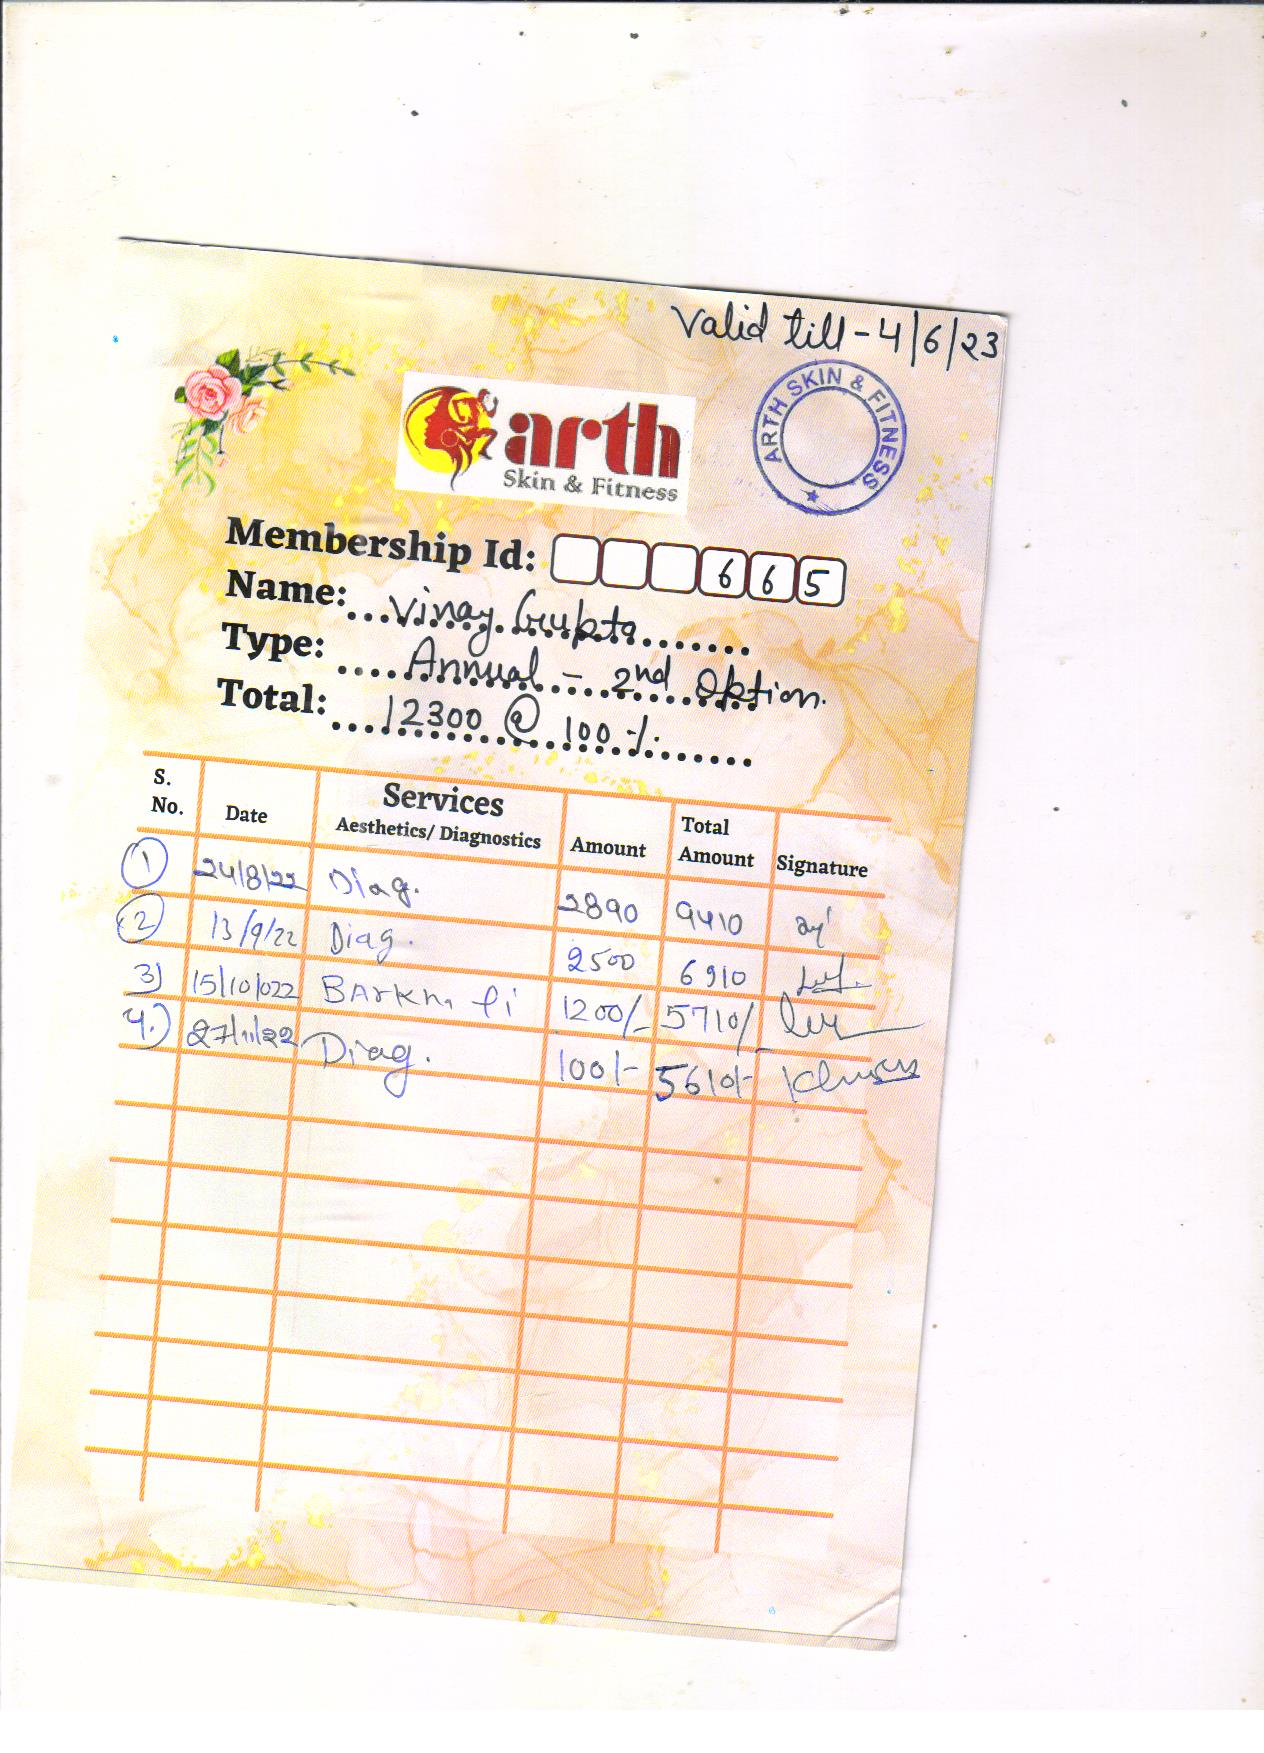 Valid till - 4/6/23
ARTH SKIN & FITNESS
arth
Skin & Fitness
Membership Id: 665
Name: Vinay Gupta
Type: Annual - 2nd Option.
Total: 12300 @ 100 %.
S. No. Date Services Aesthetics/ Diagnostics Amount Total Amount Signature
1 24/8/22 Diag. 2890 9410
2 13/9/22 Diag. 2500 6910
3) 15/10/022 1200/- 5710/-
4.) 27/11/22 Diag. 100/- 5610/-